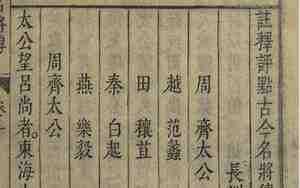 註釋評點古今名將傳
長洲
周齊太公
越范蠡
田穰苴
秦白起
燕樂毅
周齊太公
太公望呂尚者。東海上
名將傳